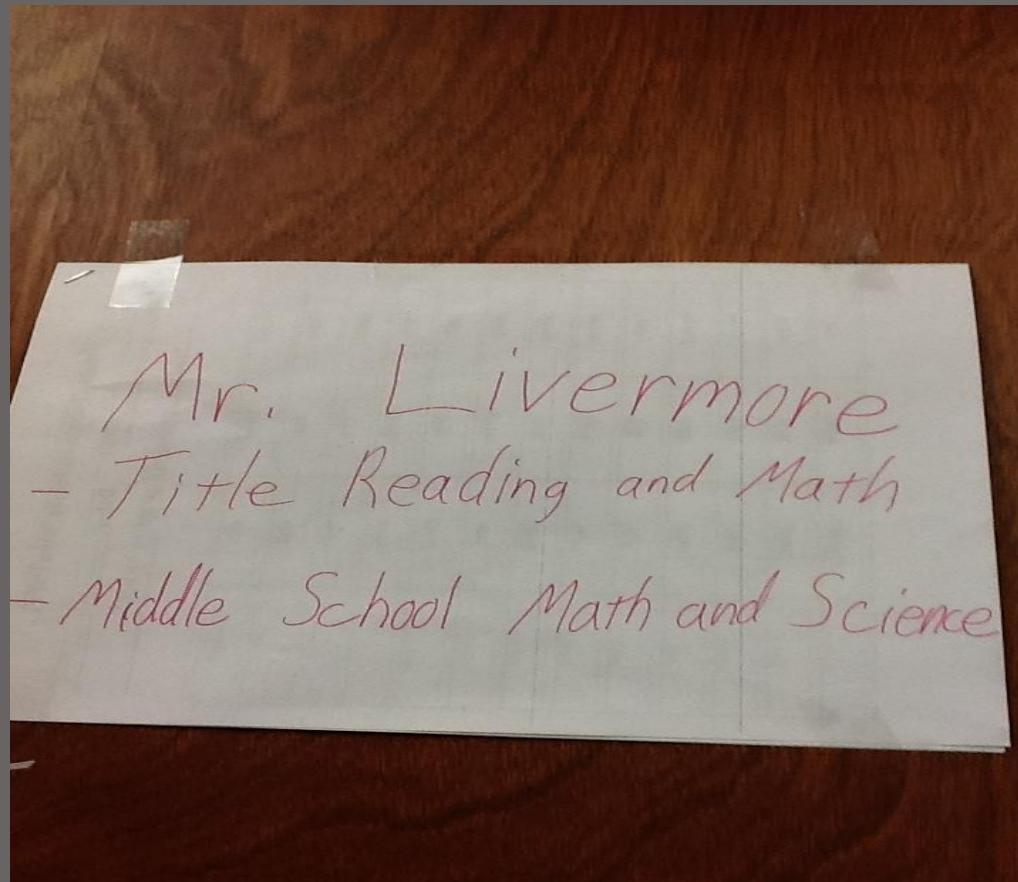 Mr. Livermore
- Title Reading and Math
- Middle School Math and Science